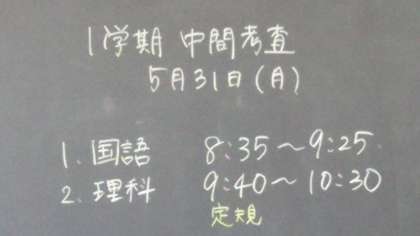 1学期 中間考査
5月31日(月)
1. 国語 8:35～9:25
2. 理科 9:40～10:30
定規